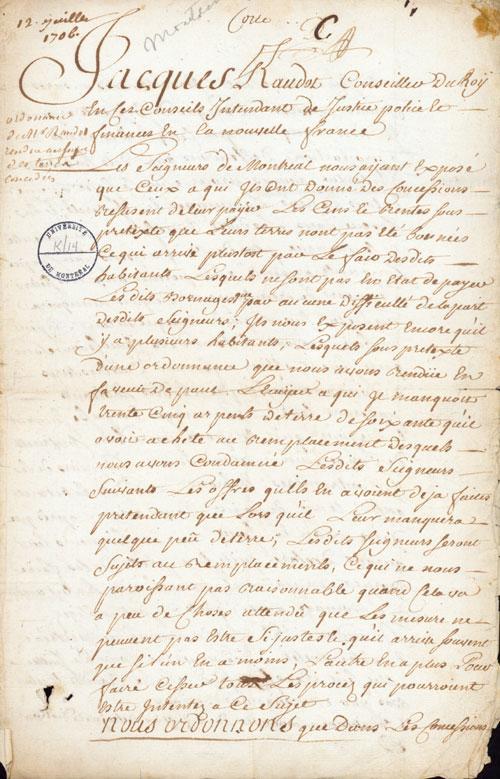 12 juillet
1706.
Cotte ... C
Jacques Raudot Conseiller Du Roy
En ses Conseils Intendant de Justice police et
finances En la nouvelle france
ordonnance
de Mr Raudot
concedées
Les Seigneurs de Montreal nous ayant Exposé
que Ceux a qui Ils Ont Donné Des Concessions
refusent de leur payer Les Cens et rentes sous
pretexte que Leurs terres nont pas été bornées
Ce qui arrive plustost par Le fait Desdits
habitants Lesquels ne sont pas en Etat de payer
Lesdits bornages par aucune Difficulté de la part
desdits Seigneurs; Ils nous Exposent Encore qu'il
y a plusieurs habitants, Lesquels sous pretexte
d'une ordonnance que nous avons rendüe En
faveur De paul Lecuyer a qui Il manquoit
trente Cinq arpents de terre de soixante qu'il
avoit acheté au remplacement desquels
nous avons Condamné Lesdits Seigneurs
Suivants Les offres qu'ils En avoient deja faites
pretendant que Lors qu'il Leur manquera
quelque peu de terre, Lesdits Seigneurs seront
Sujets au remplacements, Ce qui ne nous
paroissant pas raisonnable quand Cela va
a peu de Choses attendu que Les mesure ne
peuvent pas Estre Si justes et qu'il arrive souvent
que si l'un En a moins, L'autre En a plus Pour
faire Cesser tous Les procez qui pourroient
Estre Intentez a Ce Sujet
nous ordonnons que Dans Les Concessions
UNIVERSITÉ
DE MONTRÉAL